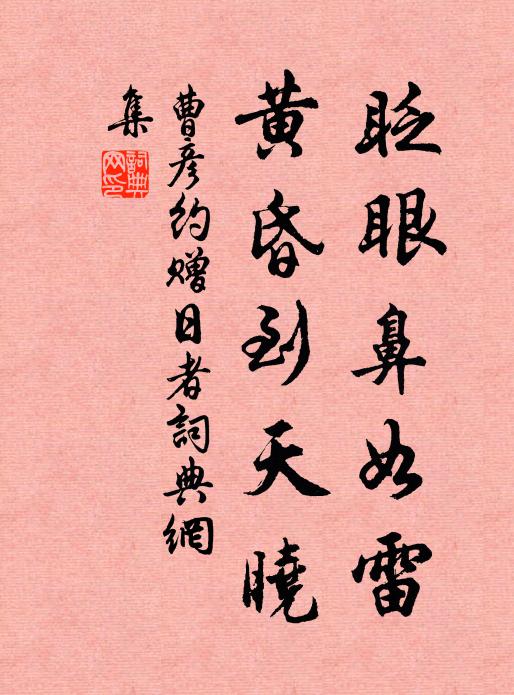 眨眼鼻如雷
黄昏到天曉
曹彦約贈日者詞典網
集
詞典網印